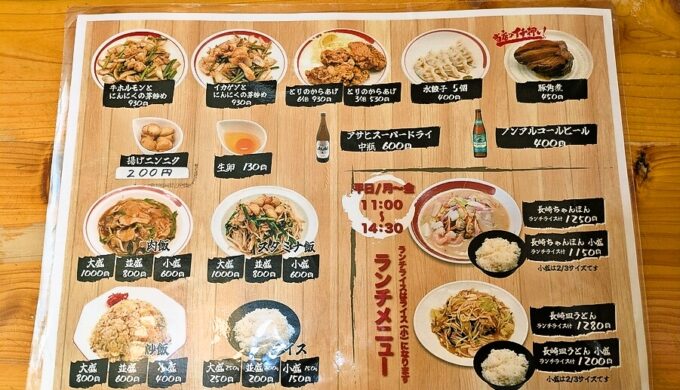 牛ホルモンと
にんにくの芽炒め
930円
イカゲソと
にんにくの芽炒め
930円
とりのからあげ
6個 930円
とりのからあげ
3個 530円
水餃子 5個
400円
豚角煮
450円
揚げニンニク
200円
生卵 130円
アサヒスーパードライ
中瓶 600円
ノンアルコールビール
400円
肉飯
大盛
1000円
並盛
800円
小盛
600円
スタミナ飯
大盛
1000円
並盛
800円
小盛
600円
炒飯
大盛
800円
並盛
600円
小盛
400円
ライス
大盛
250円
並盛
200円
小盛
150円
平日/月〜金
11:00
〜
14:30
ランチメニュー
ランチライスはライス(小)になります
長崎ちゃんぽん
ランチライス付 1250円
長崎ちゃんぽん 小盛
ランチライス付 1150円
小盛は2/3サイズです
長崎皿うどん
ランチライス付 1280円
長崎皿うどん 小盛
ランチライス付
小盛は2/3サイズです